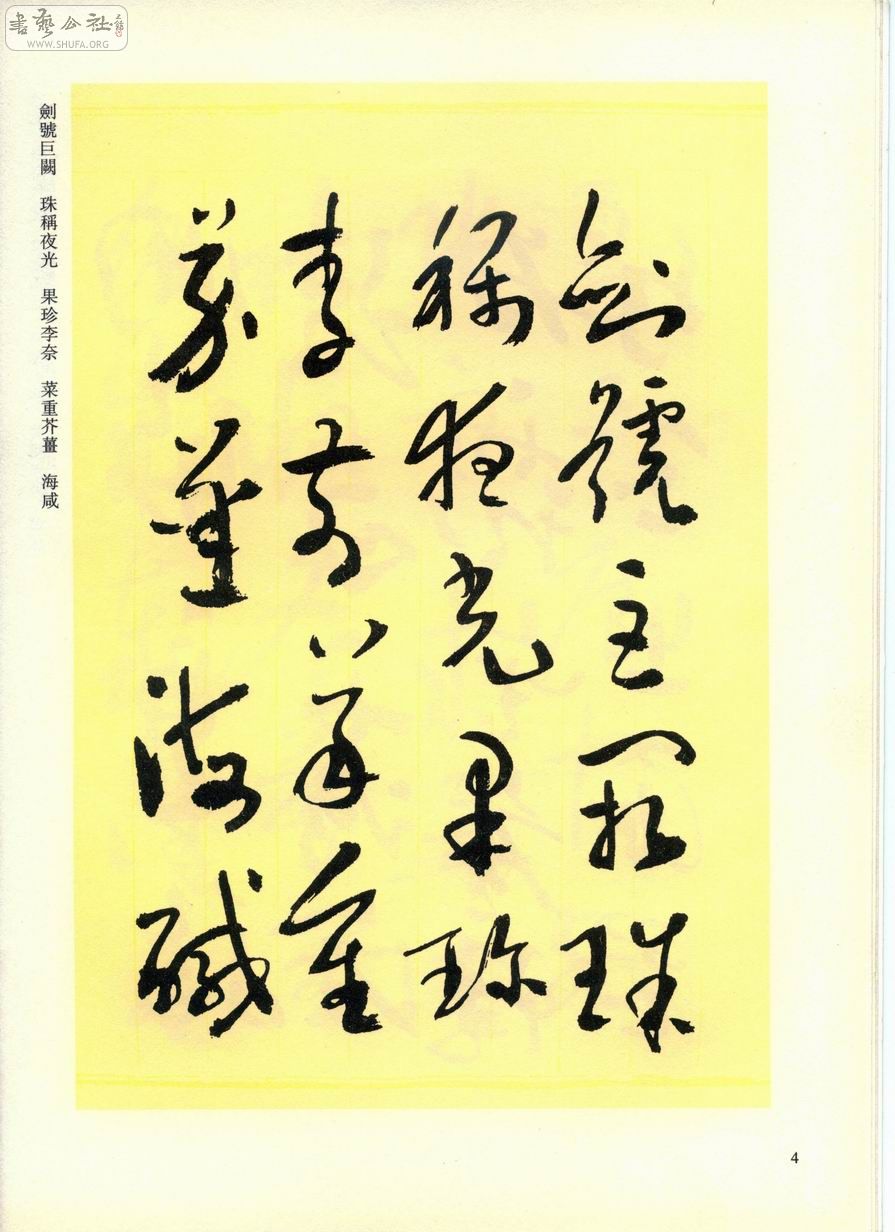 書藝公社
WWW.SHUFA.ORG
劍號巨闕珠
稱夜光果珍
李柰菜重
芥薑海鹹
劍號巨闕　珠稱夜光　果珍李奈　菜重芥薑　海咸
4